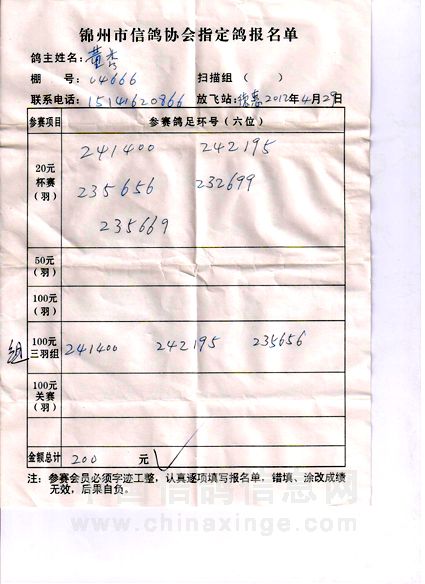 锦州市信鸽协会指定鸽报名单
鸽主姓名: 黄杏
棚 号: 04666 扫描组 ( )
联系电话: 15141620866 放飞站: 德惠 2012年4月29日
参赛项目 参赛鸽足环号(六位)
20元
杯赛
(羽)
241400 242195
235656 232699
235669
50元
(羽)
100元
(羽)
组 100元
三羽组
241400 242195 235656
100元
关赛
(羽)
金额总计 200 元 ✓
注: 参赛会员必须字迹工整,认真逐项填写报名单,错填、涂改成绩
无效,后果自负。
中国信鸽信息网
www.chinaxinge.com